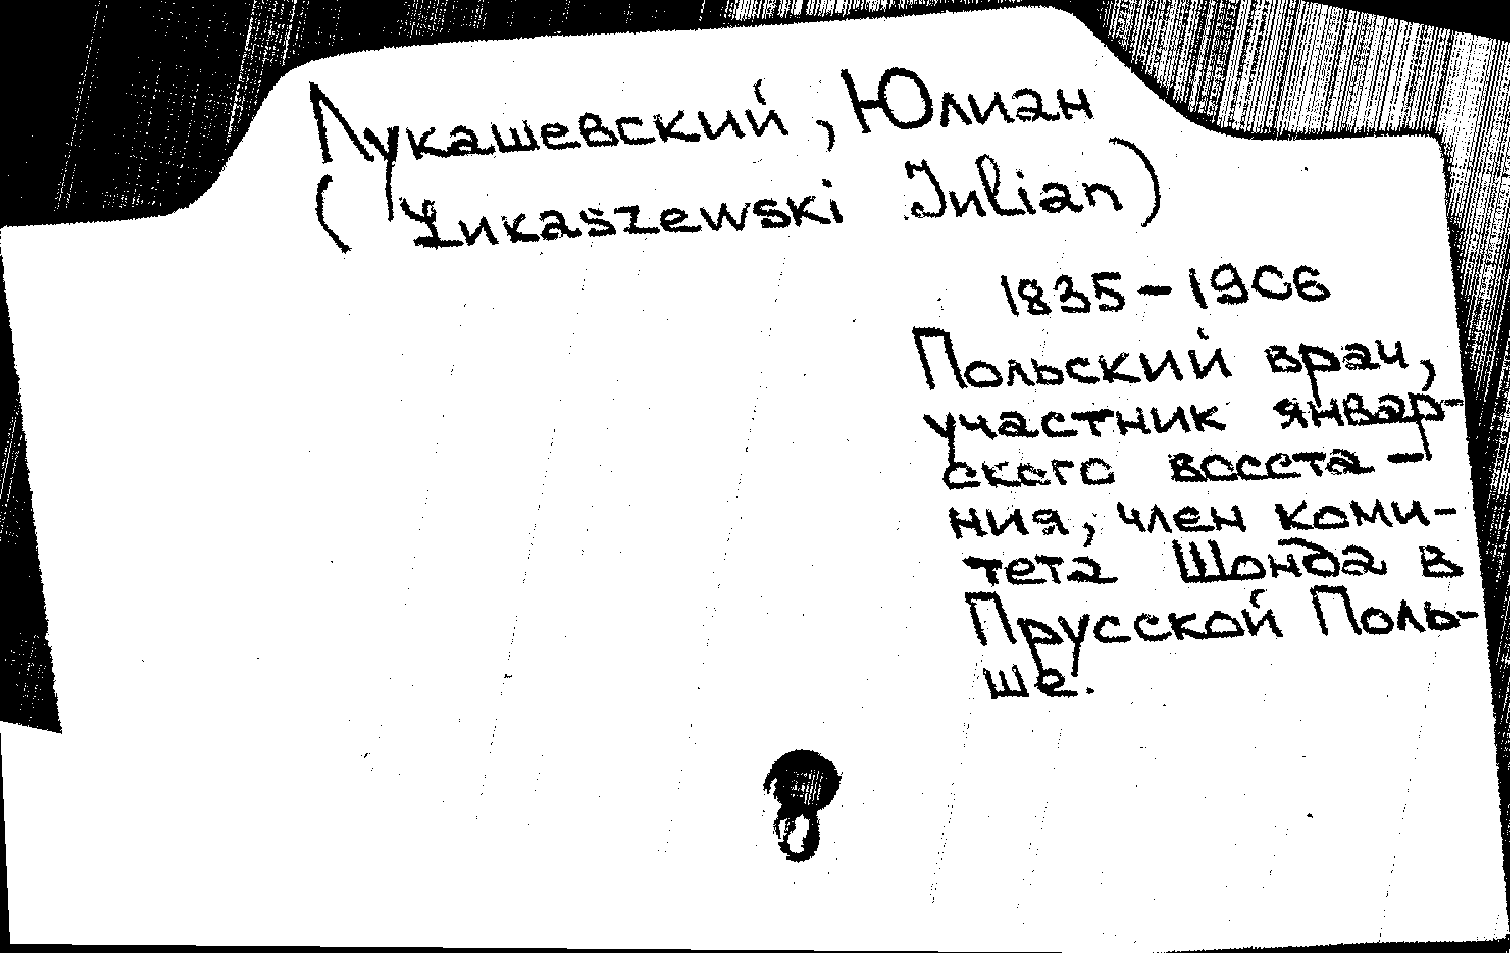 Лукашевский, Юлиан
(Łukaszewski Julian)
1835-1906
Польский врач,
участник январ-
ского восста-
ния, член коми-
тета Шонда в
Прусской Поль-
ше.